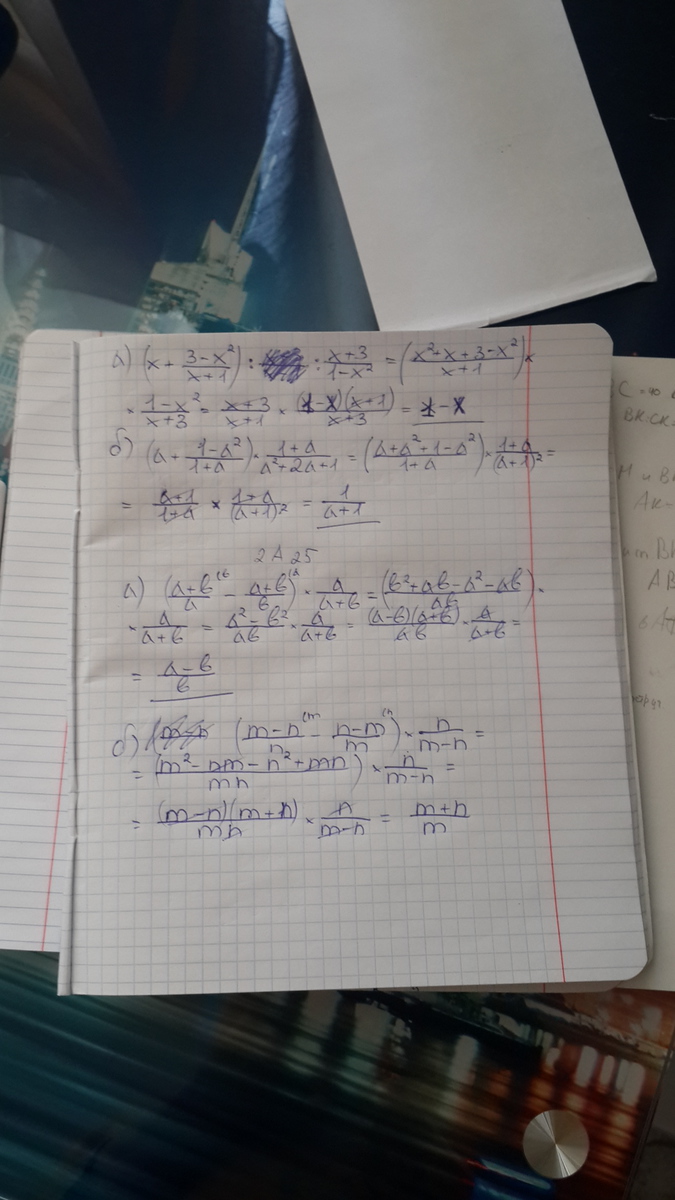 а) (x + (3-x²)/(x+1)) : : (x+3)/(1-x²) = ((x²+x+3-x²)/(x+1)) ×
× (1-x²)/(x+3) = (x+3)/(x+1) × ((1-x)(x+1))/(x+3) = 1-x
б) (a + (1-a²)/(1+a)) × (1+a)/(a²+2a+1) = ((a+a²+1-a²)/(1+a)) × (1+a)/(a+1)² =
= (a+1)/(1+a) × (1+a)/(a+1)² = 1/(a+1)
2А25
а) ((a+b)/a (b - (a+b)/b (a) × a/(a+b) = ((b²+ab-a²-ab)/ab) ×
× a/(a+b) = (a²-b²)/ab × a/(a+b) = ((a-b)(a+b))/ab × a/(a+b) =
= (a-b)/b
б) ((m-n)/n (m - (n-m)/m (n) × n/(m-n) =
= ((m²-nm-n²+mn)/mn) × n/(m-n) =
= ((m-n)(m+n))/mn × n/(m-n) = (m+n)/m
С =
ВК
М и В
АК
АВ